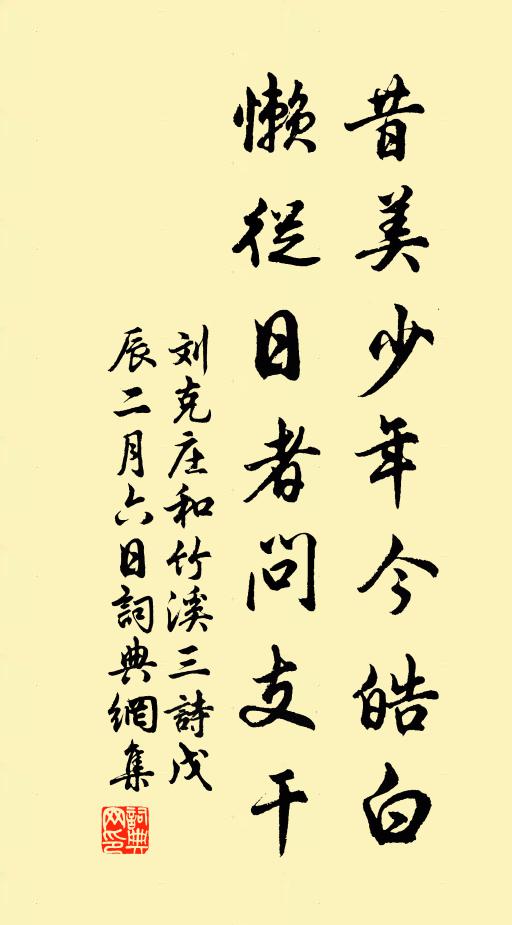 昔美少年今皓白
懒從日者問支干
刘克庄和竹溪三詩戊
辰二月六日詞典網集
詞典网印